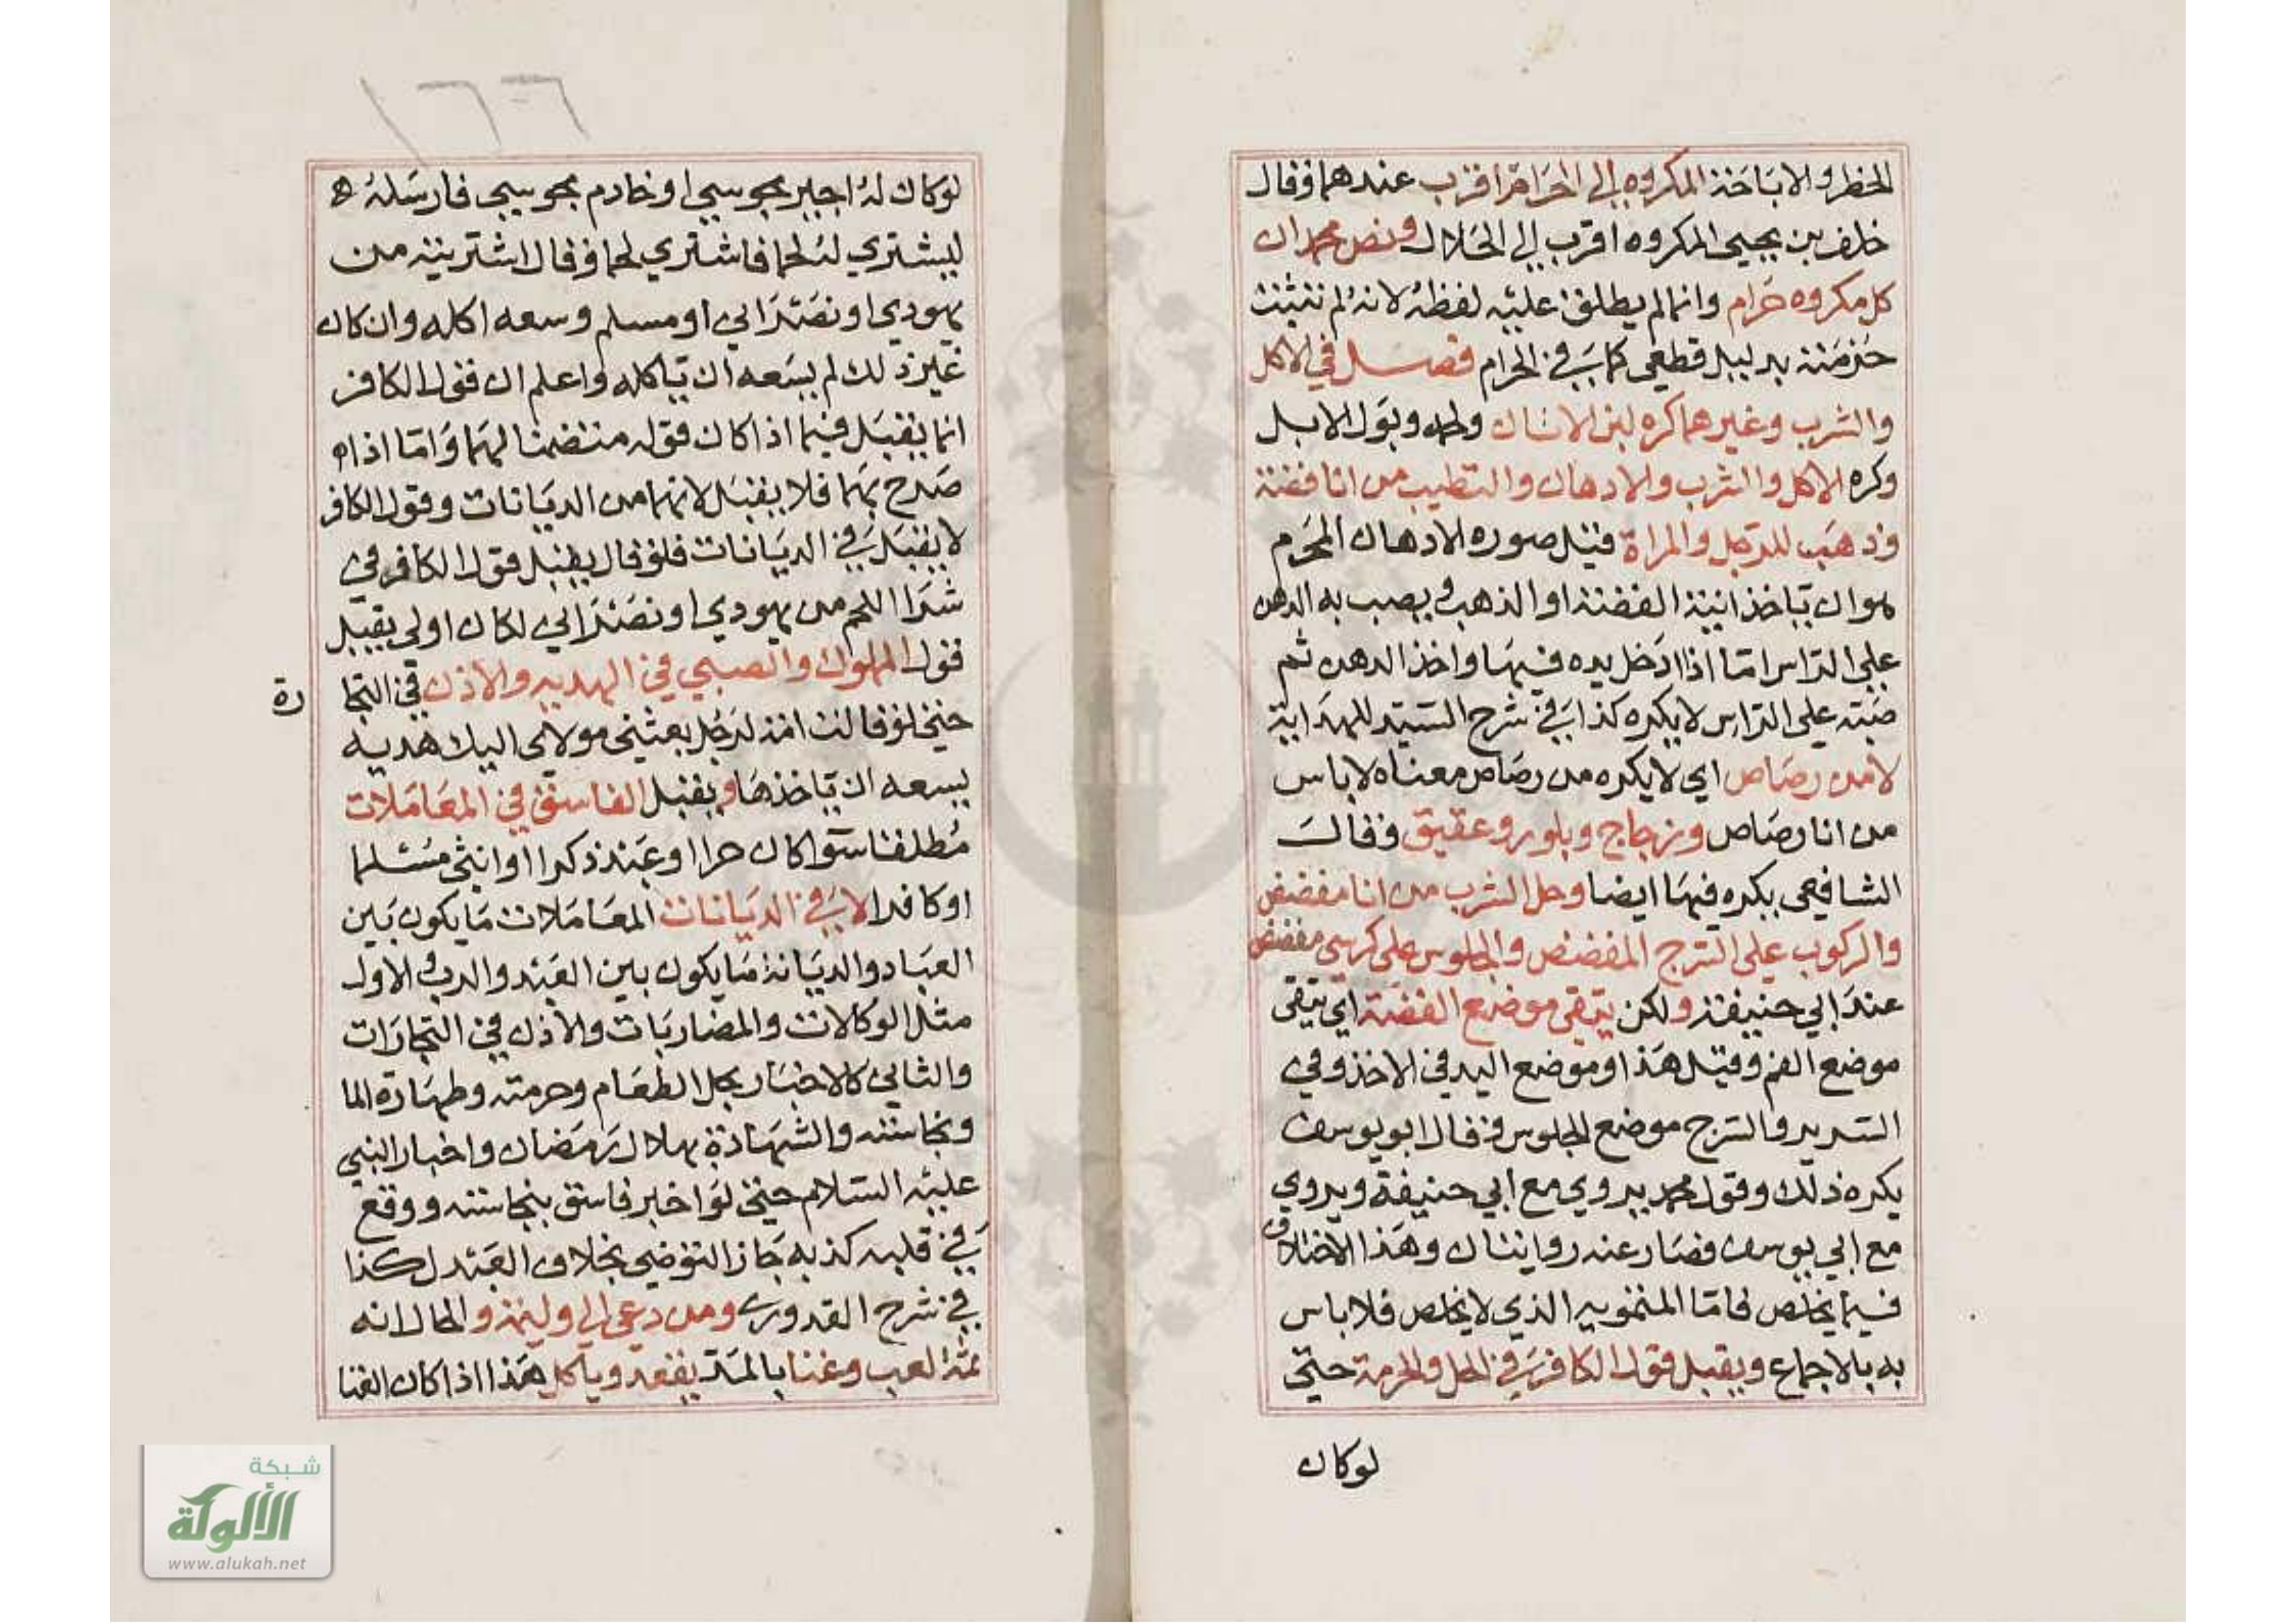 الحظر والاباحة المكروه الى الحرام اقرب عندهما وقال
خلف بن يحيى المكروه اقرب الى الحلال ونص محمد ان
كل مكروه حرام وانما لم يطلق عليه لفظه لانه لم تثبت
حرمته بدليل قطعي كما في الحرام فصل في الاكل
والشرب وغيرهما كره لبن الاتان ولحمه وبول الابل
وكره الاكل والشرب والادهان والتطيب من انا فضة
وذهب للرجل والمراة قيل صوره الادهان المحرم
هو ان ياخذ انية الفضة او الذهب ويصب به الدهن
على الراس اما اذا ادخل يده فيها واخذ الدهن ثم
صبه على الراس لا يكره كذا في شرح السيد للهداية
لا من رصاص اي لا يكره من رصاص معناه لا باس
من انا رصاص وزجاج وبلور وعقيق وقال
الشافعي يكره فيها ايضا وحل الشرب من انا مفضض
والركوب على السرج المفضض والجلوس على كرسى مفضض
عند ابي حنيفة ولكن يتقى موضع الفضة اي يتقى
موضع الفم وقيل هذا وموضع اليد في الاخذ وفي
السرير والسرج موضع الجلوس وقال ابو يوسف
يكره ذلك وقول محمد يروي مع ابي حنيفة ويروي
مع ابي يوسف فصار عنه روايتان وهذا الاختلاف
فيما يخلص فاما التمويه الذي لا يخلص فلا باس
به بالاجماع ويقبل قول الكافر في الحل والحرمة حتى
لو كان
١٦٦
لو كان له اجير مجوسيا او خادم مجوسي فارسله
ليشتري له لحما فاشتري لحما وقال اشتريته من
يهودي او نصراني او مسلم وسعه اكله وان كان
غير ذلك لم يسعه ان ياكله واعلم ان قول الكافر
انما يقبل فيما اذا كان قوله متضمنا لهما واما اذا
صرح بهما فلا يقبل لانهما من الديانات وقول الكافر
لا يقبل في الديانات فلو قال يقبل قول الكافر في
شرا اللحم من يهودي او نصراني لكان اولى يقبل
قول المملوك والصبي في الهديه والاذن في التجا رة
حتى لو قالت امة لرجل بعثني مولاى اليك هديه
يسعه ان ياخذها ويقبل الفاسق في المعاملات
مطلقا سوا كان حرا او عبد ذكرا او انثى مسلما
او كافرا لا في الديانات المعاملات ما يكون بين
العباد والديانة ما يكون بين العبد والرب والاول
مثل الوكالات والمضاربات والاذن في التجارات
والثاني كالاخبار بحل الطعام وحرمته وطهارة الما
ونجاسته والشهادة بهلال رمضان واخبار النبي
عليه السلام حتى لو اخبر فاسق بنجاسته ووقع
في قلبه كذبه جاز التوضي بخلاف العبد كذا
في شرح القدورى ومن دعى الى وليمة والحال انه
ثمة لعب وغنا يقعد وياكل هذا اذا كان الغنا
شبكة
الألوكة
www.alukah.net